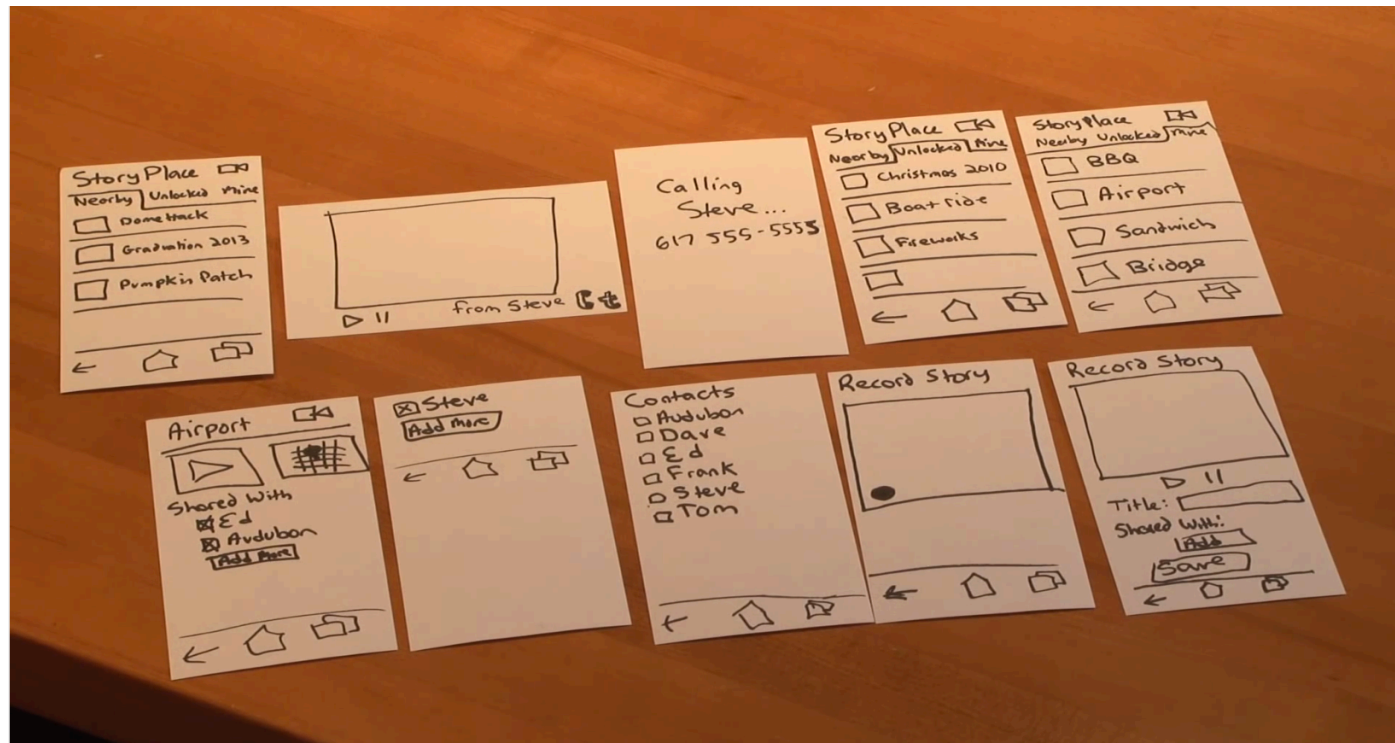 StoryPlace
Nearby Unlocked Mine
Dome Hack
Graduation 2013
Pumpkin Patch
from Steve
Calling
Steve...
617 555-5555
StoryPlace
Nearby Unlocked Mine
Christmas 2010
Boat ride
Fireworks
StoryPlace
Nearby Unlocked Mine
BBQ
Airport
Sandwich
Bridge
Airport
Shared With
Ed
Audubon
Add More
Steve
Add more
Contacts
Audubon
Dave
Ed
Frank
Steve
Tom
Record Story
Record Story
Title:
Shared With:
Add
Save